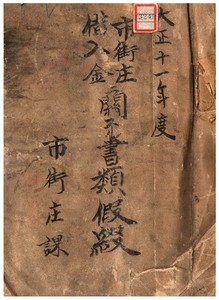 大正十一年度
市街庄
借入金
ニ關スル書類假綴
市街庄課